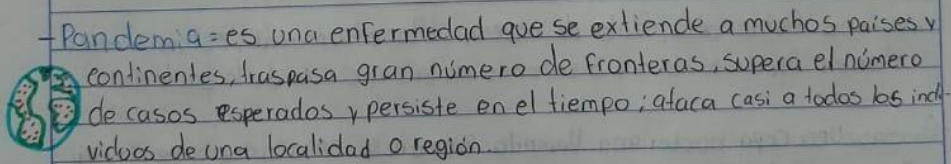 -Pandemia=es una enfermedad que se extiende a muchos países y
continentes, traspasa gran número de fronteras, supera el número
de casos esperados y persiste en el tiempo; ataca casi a todos los indi-
viduos de una localidad o región.